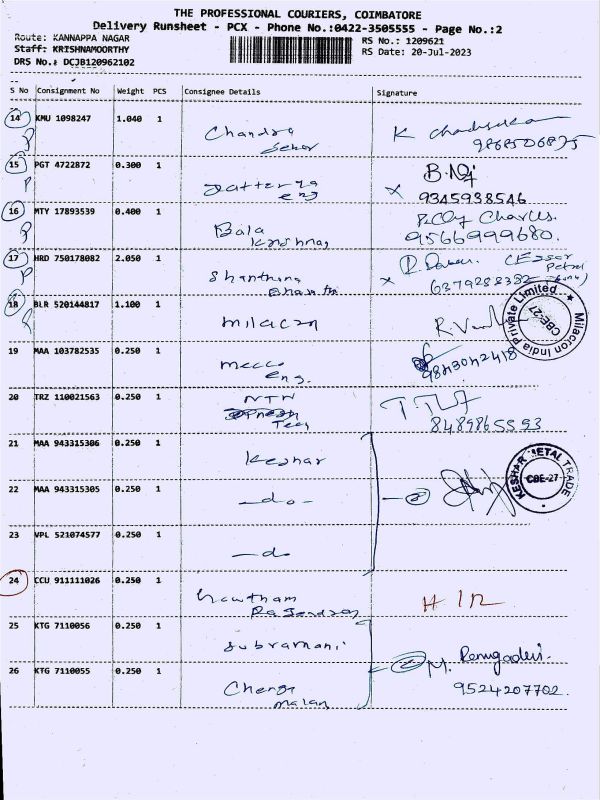 THE PROFESSIONAL COURIERS, COIMBATORE
Delivery Runsheet - PCX - Phone No.:0422-3505555 - Page No.:2
Route: KANNAPPA NAGAR
RS No.: 1209621
Staff: KRISHNAMOORTHY
RS Date: 20-Jul-2023
DRS No.: DCJB120962102
S No Consignment No Weight PCS Consignee Details Signature
14 KMU 1098247 1.040 1
Chandra
Sekar
K
9868506875
15 PGT 4722872 0.300 1
eng
B.
x 9345938546
16 MTY 17893539 0.400 1
Bala
Krishnag
Charles.
9566999680.
17 HRD 750178082 2.050 1
Shanthana
Bharath
x 6379288382
18 BLR 520144817 1.100 1
milacron
R.
Milacron India Private Limited
CBE-27
19 MAA 103782535 0.250 1
Mecco
eng.
9843042418
20 TRZ 110021563 0.250 1
NTN
Tech
8489865593
21 MAA 943315306 0.250 1
Keshar
22 MAA 943315305 0.250 1
-do-
KESHAR METAL TRADE
CBE-27
23 VPL 521074577 0.250 1
-do
24 CCU 911111026 0.250 1
Gowtham
Rajendran
25 KTG 7110056 0.250 1
Subramani
26 KTG 7110055 0.250 1
Chenga
malan
M. Renugadevi.
9524207702.